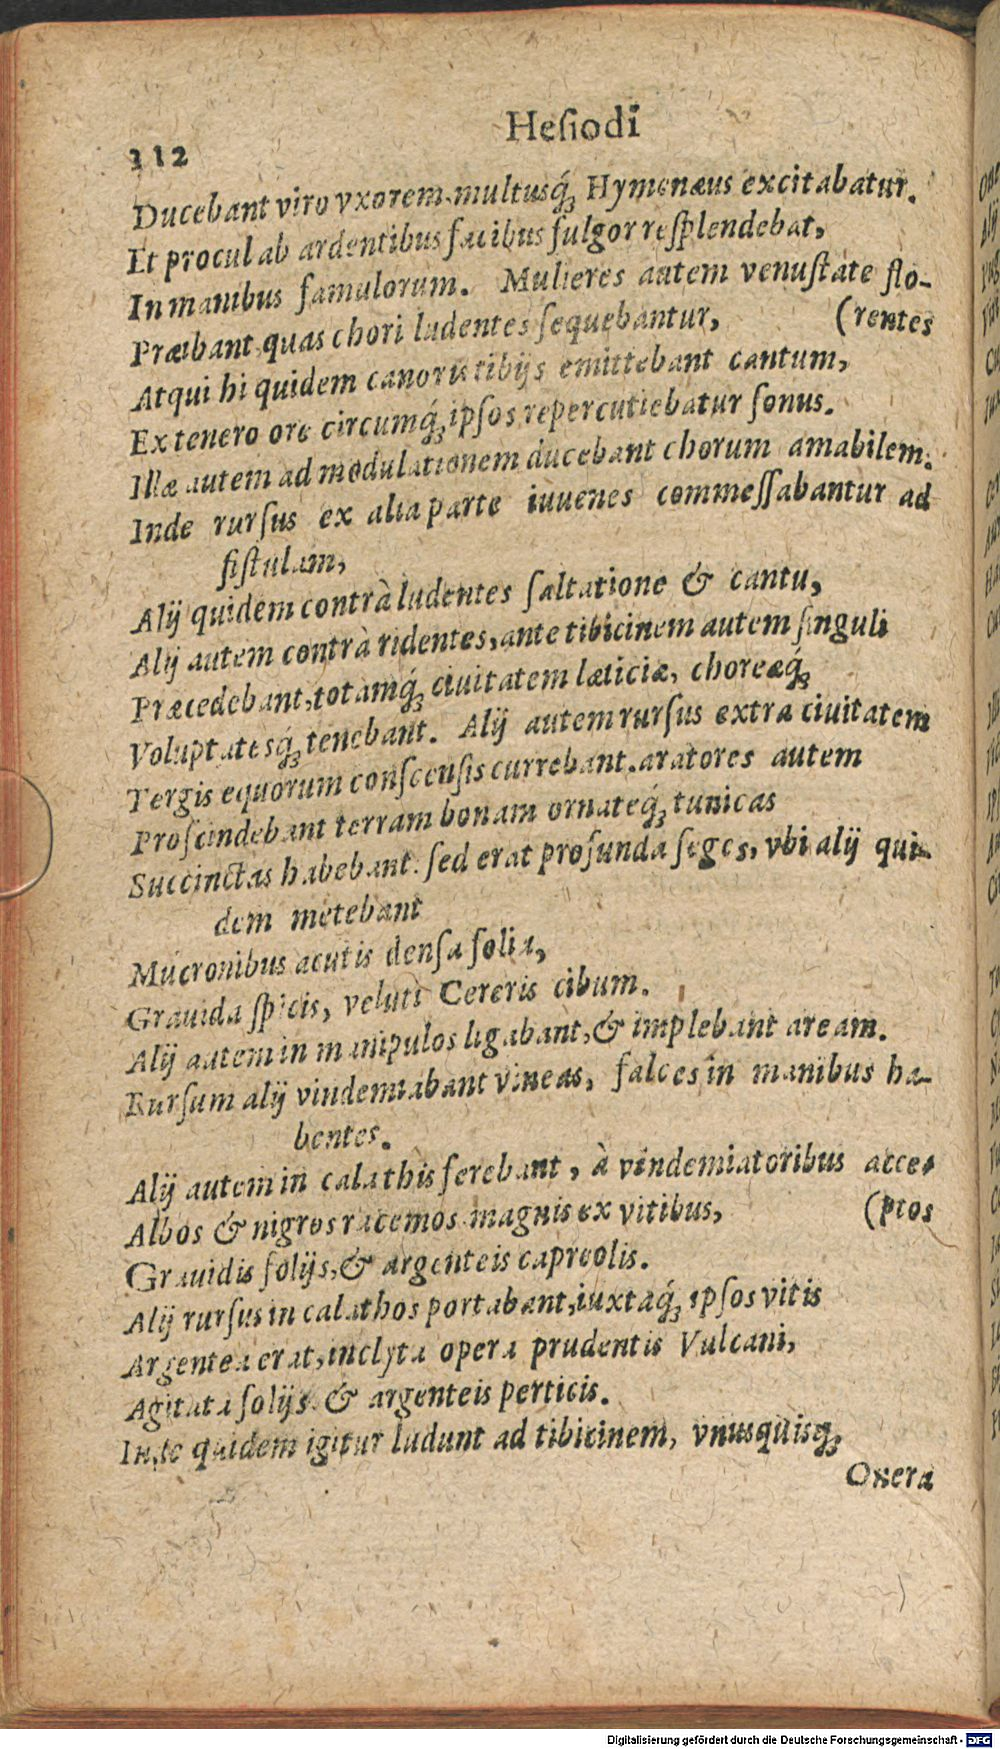 112
Heſiodi
Ducebant viro vxorem. multusq́; Hymenæus excitabatur.
Et procul ab ardentibus facibus fulgor reſplendebat,
In manibus famulorum. Mulieres autem venuſtate flo-
Præibant, quas chori ludentes ſequebantur, (rentes
Atqui hi quidem canoris tibijs emittebant cantum,
Ex tenero ore circumq́; ipſos repercutiebatur ſonus.
Illæ autem ad modulationem ducebant chorum amabilem.
Inde rurſus ex alia parte iuuenes commeſſabantur ad
fiſtulam,
Alij quidem contrà ludentes ſaltatione & cantu,
Alij autem contrà ridentes, ante tibicinem autem ſinguli
Præcedebant, totamq́; ciuitatem læticiæ, choreæq́;
Voluptatesq́; tenebant. Alij autem rurſus extra ciuitatem
Tergis equorum conſcenſis currebant. aratores autem
Proſcindebant terram bonam ornateq́; tunicas
Succinctas habebant. ſed erat profunda ſeges, vbi alij qui-
dem metebant
Mucronibus acutis denſa folia,
Grauida ſpicis, veluti Cereris cibum.
Alij autem in manipulos ligabant, & implebant aream.
Rurſum alij vindemiabant vineas, falces in manibus ha-
bentes.
Alij autem in calathis ferebant, à vindemiatoribus acce-
Albos & nigros racemos magnis ex vitibus, (ptos
Grauidis folijs, & argenteis capreolis.
Alij rurſus in calathos portabant, iuxtaq́; ipſos vitis
Argentea erat, inclyta opera prudentis Vulcani,
Agitata folijs & argenteis perticis.
Inde quidem igitur ludunt ad tibicinem, vnusquisq;
Onera
Digitalisierung gefördert durch die Deutsche Forschungsgemeinschaft - DFG